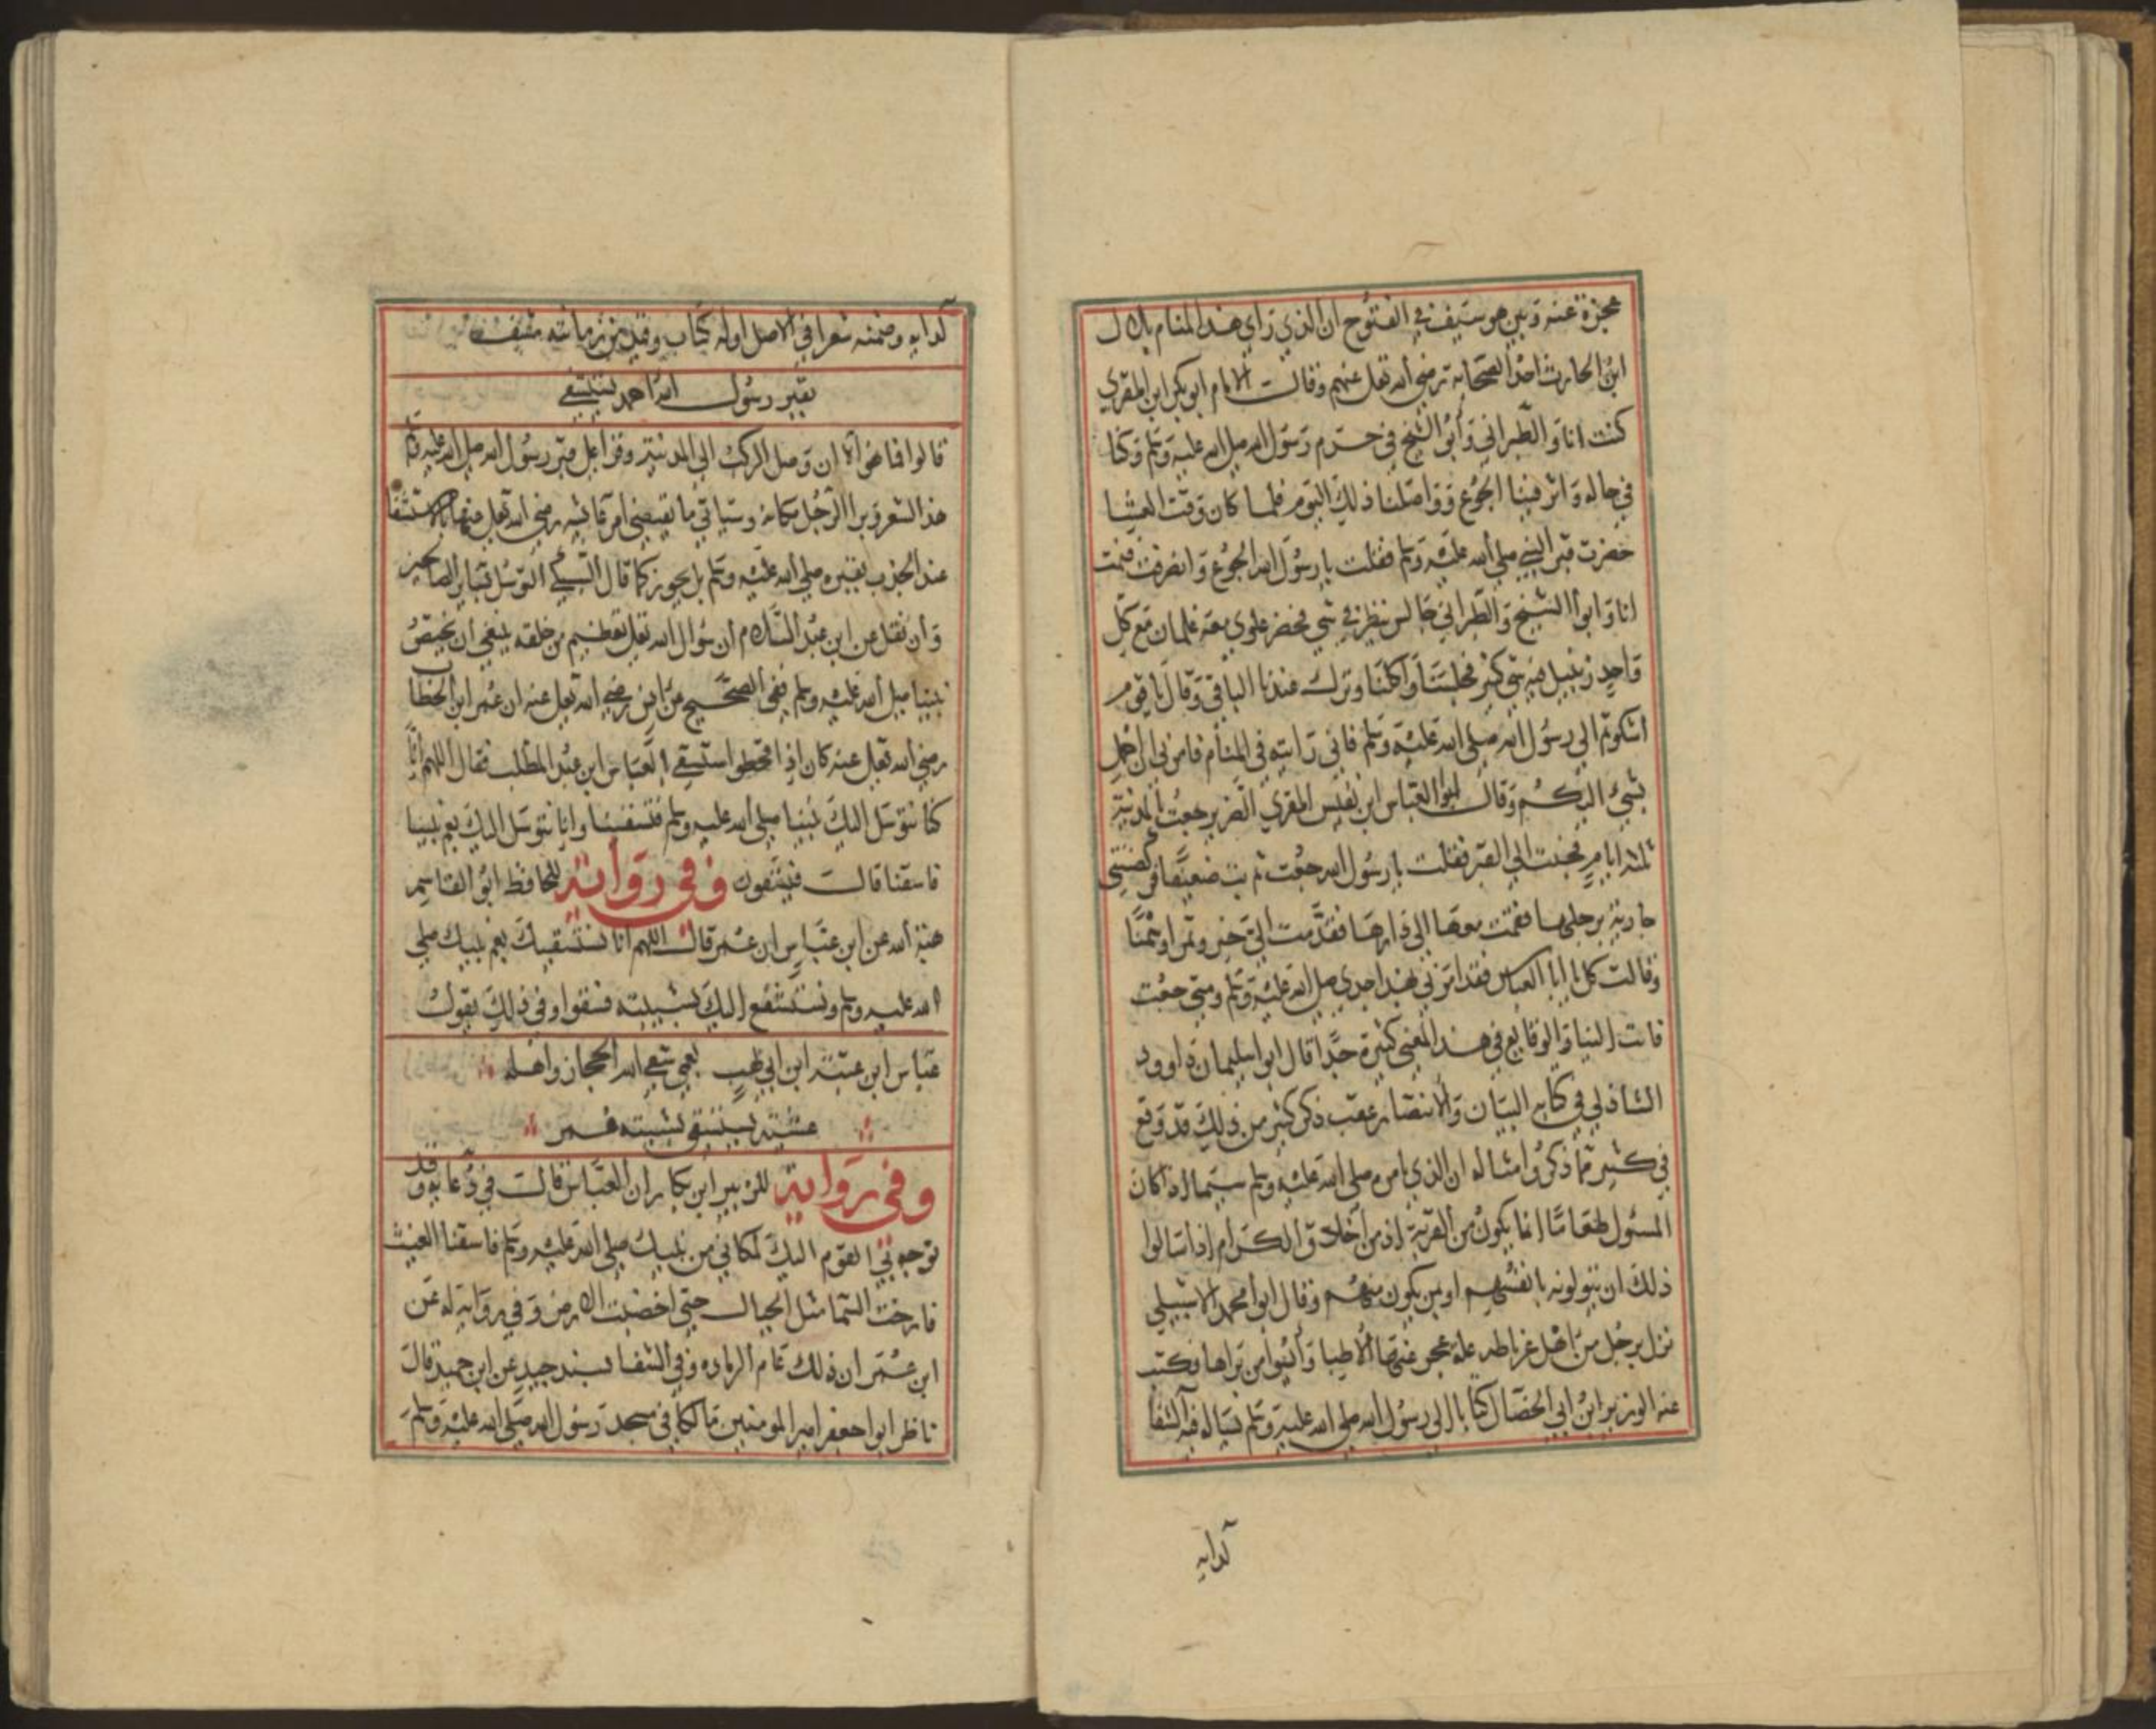 عجزة عنه وبين هو سيف في الفتوح ان الذي راي هذا المنام بلال
ابن الحارث احد الصحابة رضي الله تعلي عنهم وقالت الامام ابو بكر ابن المقري
كنت انا والطبراني وابو الشيخ في حرم رسول الله صلي الله عليه وسلم وكنا
في حاله واثر فينا الجوع وواصلنا ذلك اليوم فلما كان وقت العشا
حضرت قبر النبي صلي الله عليه وسلم فقلت يا رسول الله الجوع وانصرفت فنمت
انا وابوا الشيخ والطبراني جالس ينظر في شي فحضر علوي معه غلمان مع كل
واحد زنبيل فيه شي كثير فجلسنا واكلنا وترك عندنا الباقي وقال يا قوم
اشكوتم الي رسول الله صلي الله عليه وسلم فاني رايته في المنام فامرني ان احمل
بشيء اليكم وقال ابو العباس ابن نفيس المقري الضرير جعت بالمدينة
ثلثه ايام فجئت الي القبر فقلت يا رسول الله جعت ثم بت ضعيفا فركضتني
جارية برجلها فقمت معها الي دارها فقدمت الي خبز وتمرا وسمنا
وقالت كل يا ابا العباس فقد امرني بهذا جدي صلي الله عليه وسلم ومتي جعت
فات الينا والوقايع في هذا المعني كثيرة جدا قال ابو اسليمان داوود
الشاذلي في كتابه البيان والانتصار عقب ذكر كثير من ذلك قد وقع
في كثير مما ذكر وامثاله ان الذي يامره صلي الله عليه وسلم سيما اذا كان
المسئول طعاما انما يكون من القربة اذ من اخلاق الكرام اذا سالوا
ذلك ان يتولونه بانفسهم او بمن يكون منهم وقال ابو محمد الاشبيلي
نزل برجل من اهل غرناطه علة عجز عنها الاطبا وأيسوا من براها فكتب
عنه الوزير ابن ابي الخصال كتابا الي رسول الله صلي الله عليه وسلم يساله فيه الشفا
لدايه
لدايه وضمنه شعرا في الاصل اوله كتاب وقيذ من زمانته مشف
بقبر رسول الله احمد يستشفي
قالوا فما هي الا ان وصل الركب الي المدينة وقرا علي قبر رسول الله صلي الله عليه وسلم
هذا الشعر وبرا الرجل مكانه وسياتي ما يقتضي امر عائشه رضي الله تعلي عنها بالاستشفا
عند الجدب بقبره صلي الله عليه وسلم بل يجوز كما قال السبكي التوسل بساير الصالحين
وان نقل عن ابن عبد السلام ان سؤال الله تعلي بعظيم من خلقه ينبغي ان يختص
بنبينا صلي الله عليه وسلم ففي الصحيح عن انس رضي الله تعلي عنه ان عمر ابن الخطاب
رضي الله تعلي عنه كان اذا قحطوا استسقي بالعباس ابن عبد المطلب فقال اللهم انا
كنا نتوسل اليك بنبينا صلي الله عليه وسلم فتسقينا وانا نتوسل اليك بعم نبينا
فاسقنا قالت فيسقون وفي رواية للحافظ ابو القاسم
هبة الله عن ابن عباس ان عمر قالت اللهم انا نستسقيك بعم نبيك صلي
الله عليه وسلم ونستشفع اليك بشيبته فسقوا وفي ذلك يقول
عباس ابن عتبة ابن ابي لهب بعمي سقي الله الحجاز واهله
عشية يستسقي بشيبته عمر
وفي رواية للزبير ابن بكار ان العباس قالت في دعايه وقد
توجه بي القوم اليك لمكاني من نبيك صلي الله عليه وسلم فاسقنا الغيث
فارخت السما مثل الجبال حتي اخضبت الارض وفي رواية له عن
ابن عمر ان ذلك عام الرماده وفي الشفا بسند جيد عن ابن حميد قال
ناظر ابوا جعفر امير المومنين مالكا في مسجد رسول الله صلي الله عليه وسلم